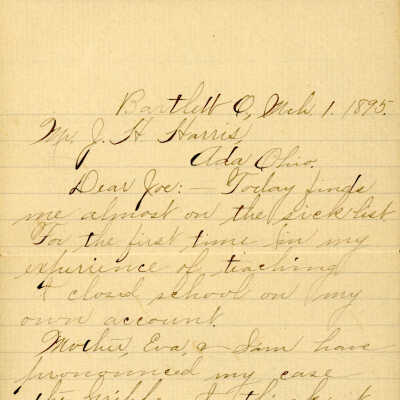 Bartlett O, Mch 1. 1895.
Mr. J. H. Harris,
Ada Ohio.
Dear Joe: — Today finds
me almost on the sick list
For the first time in my
experience of teaching
I closed school on my
own account.
Mother, Eva, & Sam have
pronounced my case
the I think it